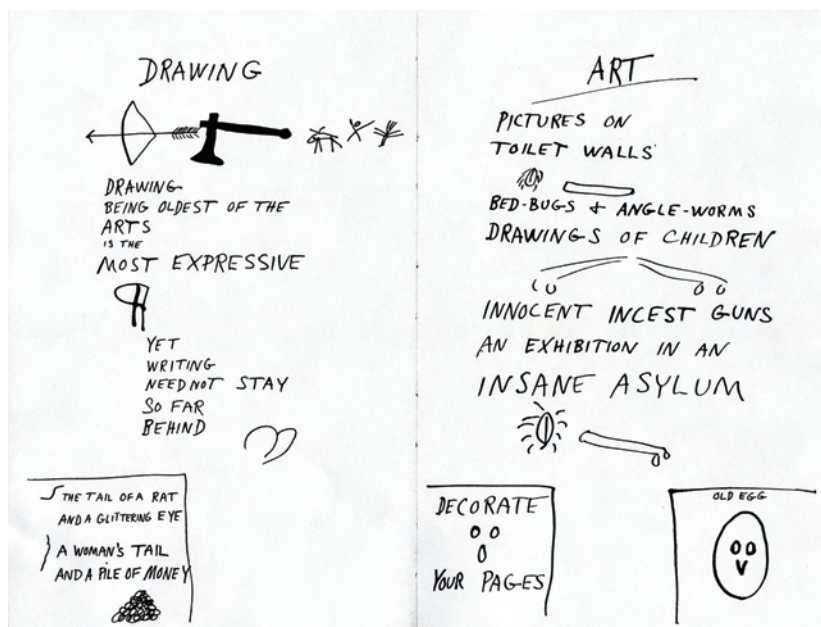 DRAWING
DRAWING
BEING OLDEST OF THE
ARTS
IS THE
MOST EXPRESSIVE
YET
WRITING
NEED NOT STAY
SO FAR
BEHIND
THE TAIL OF A RAT
AND A GLITTERING EYE
A WOMAN'S TAIL
AND A PILE OF MONEY
ART
PICTURES ON
TOILET WALLS
BED-BUGS & ANGLE-WORMS
DRAWINGS OF CHILDREN
INNOCENT INCEST GUNS
AN EXHIBITION IN AN
INSANE ASYLUM
DECORATE
YOUR PAGES
OLD EGG